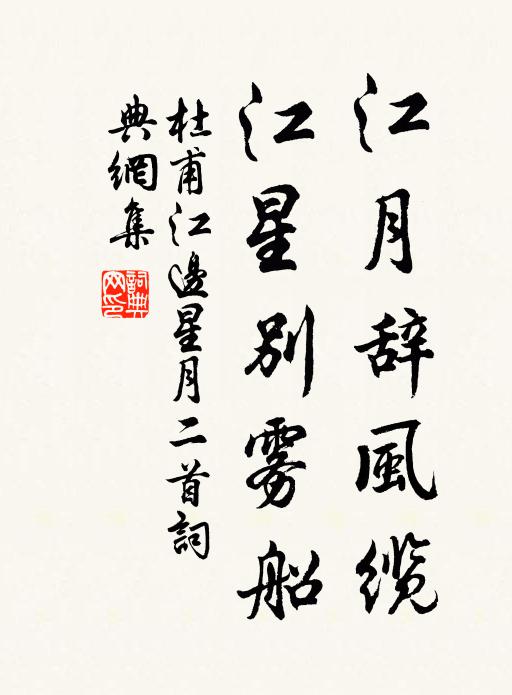 江月辞風缆
江星别雾船
杜甫江邊星月二首詞
典網集
詞典
网印